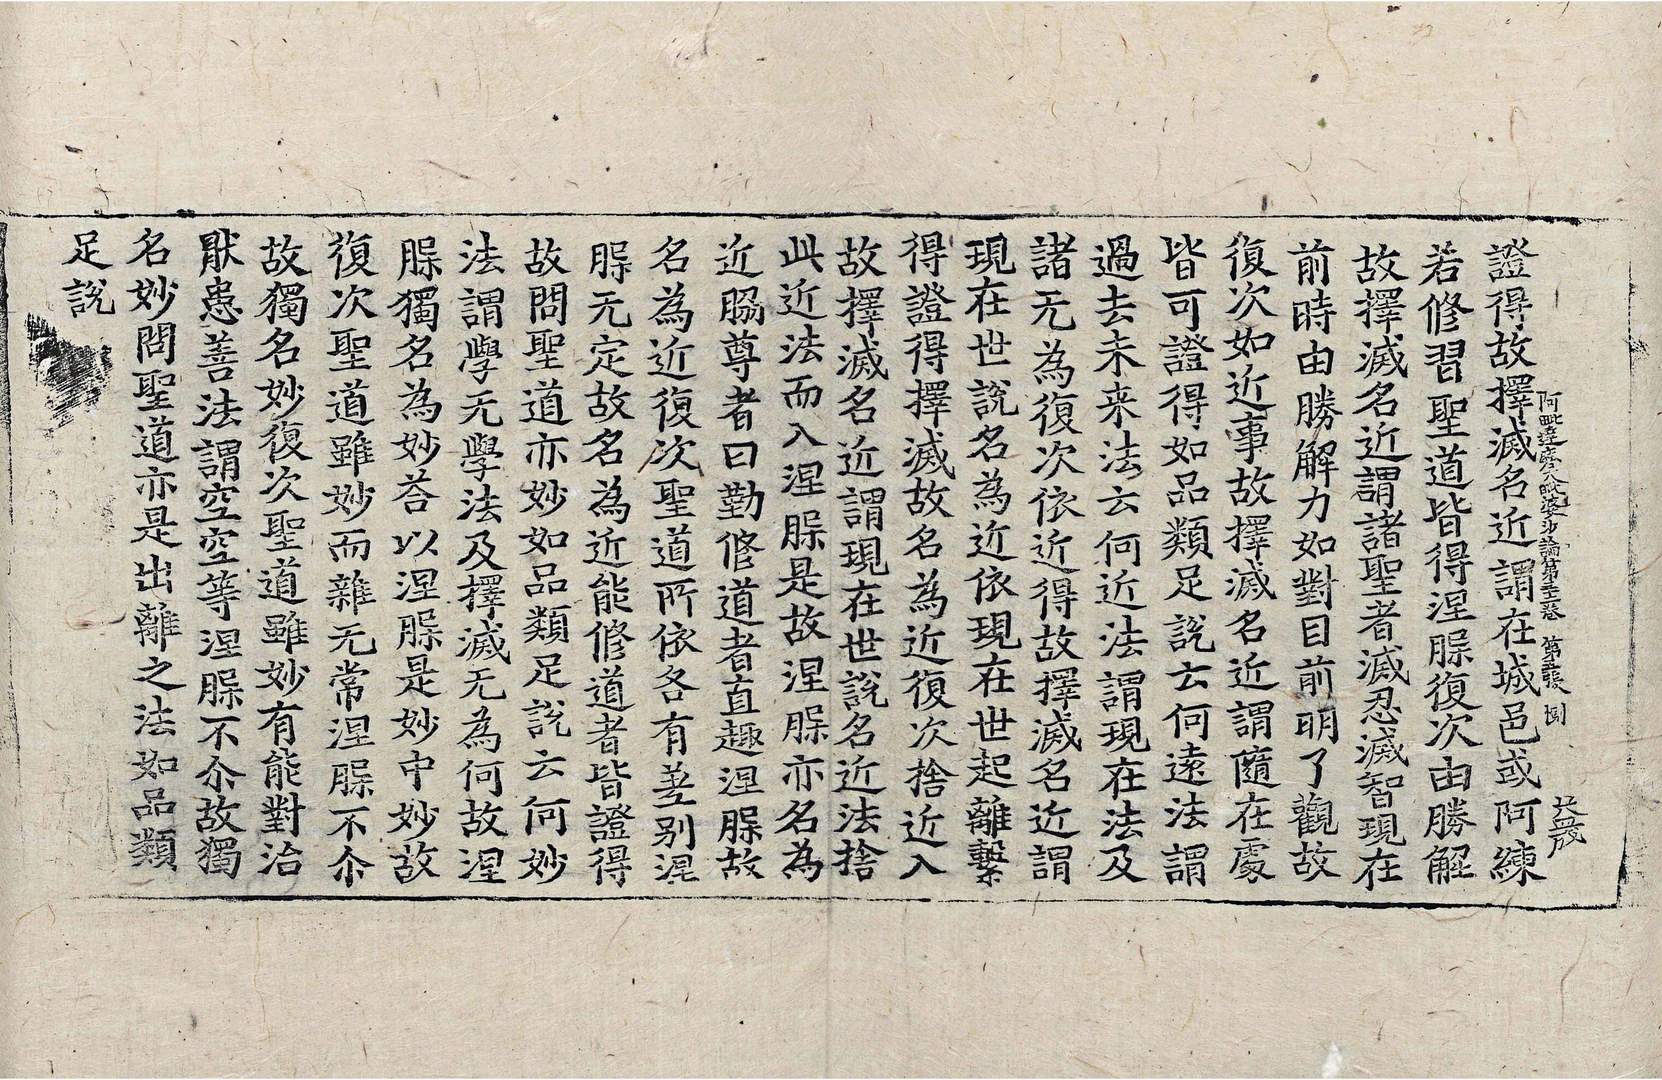 證得故擇滅名近謂在城邑或阿練
阿毗達磨大毗婆沙論第 卷 第 張
若修習聖道皆得涅腺復次由勝解
故擇滅名近謂諸聖者滅忍滅智現在
前時由勝解力如對目前明了觀故
復次如近事故擇滅名近謂隨在處
皆可證得如品類足說云何遠法謂
過去未来法云何近法謂現在法及
諸无為復次依近得故擇滅名近謂
現在世說名為近依現在世起離繫
得證得擇滅故名為近復次捨近入
故擇滅名近謂現在世說名近法捨
此近法而入涅腺是故涅腺亦名為
近脇尊者曰勤修道者直趣涅腺故
名為近復次聖道所依各有差別涅
腺无定故名為近能修道者皆證得
故問聖道亦妙如品類足說云何妙
法謂學无學法及擇滅无為何故涅
腺獨名為妙荅以涅腺是妙中妙故
復次聖道雖妙而雜无常涅腺不尒
故獨名妙復次聖道雖妙有能對治
猒患善法謂空空等涅腺不尒故獨
名妙問聖道亦是出離之法如品類
足說